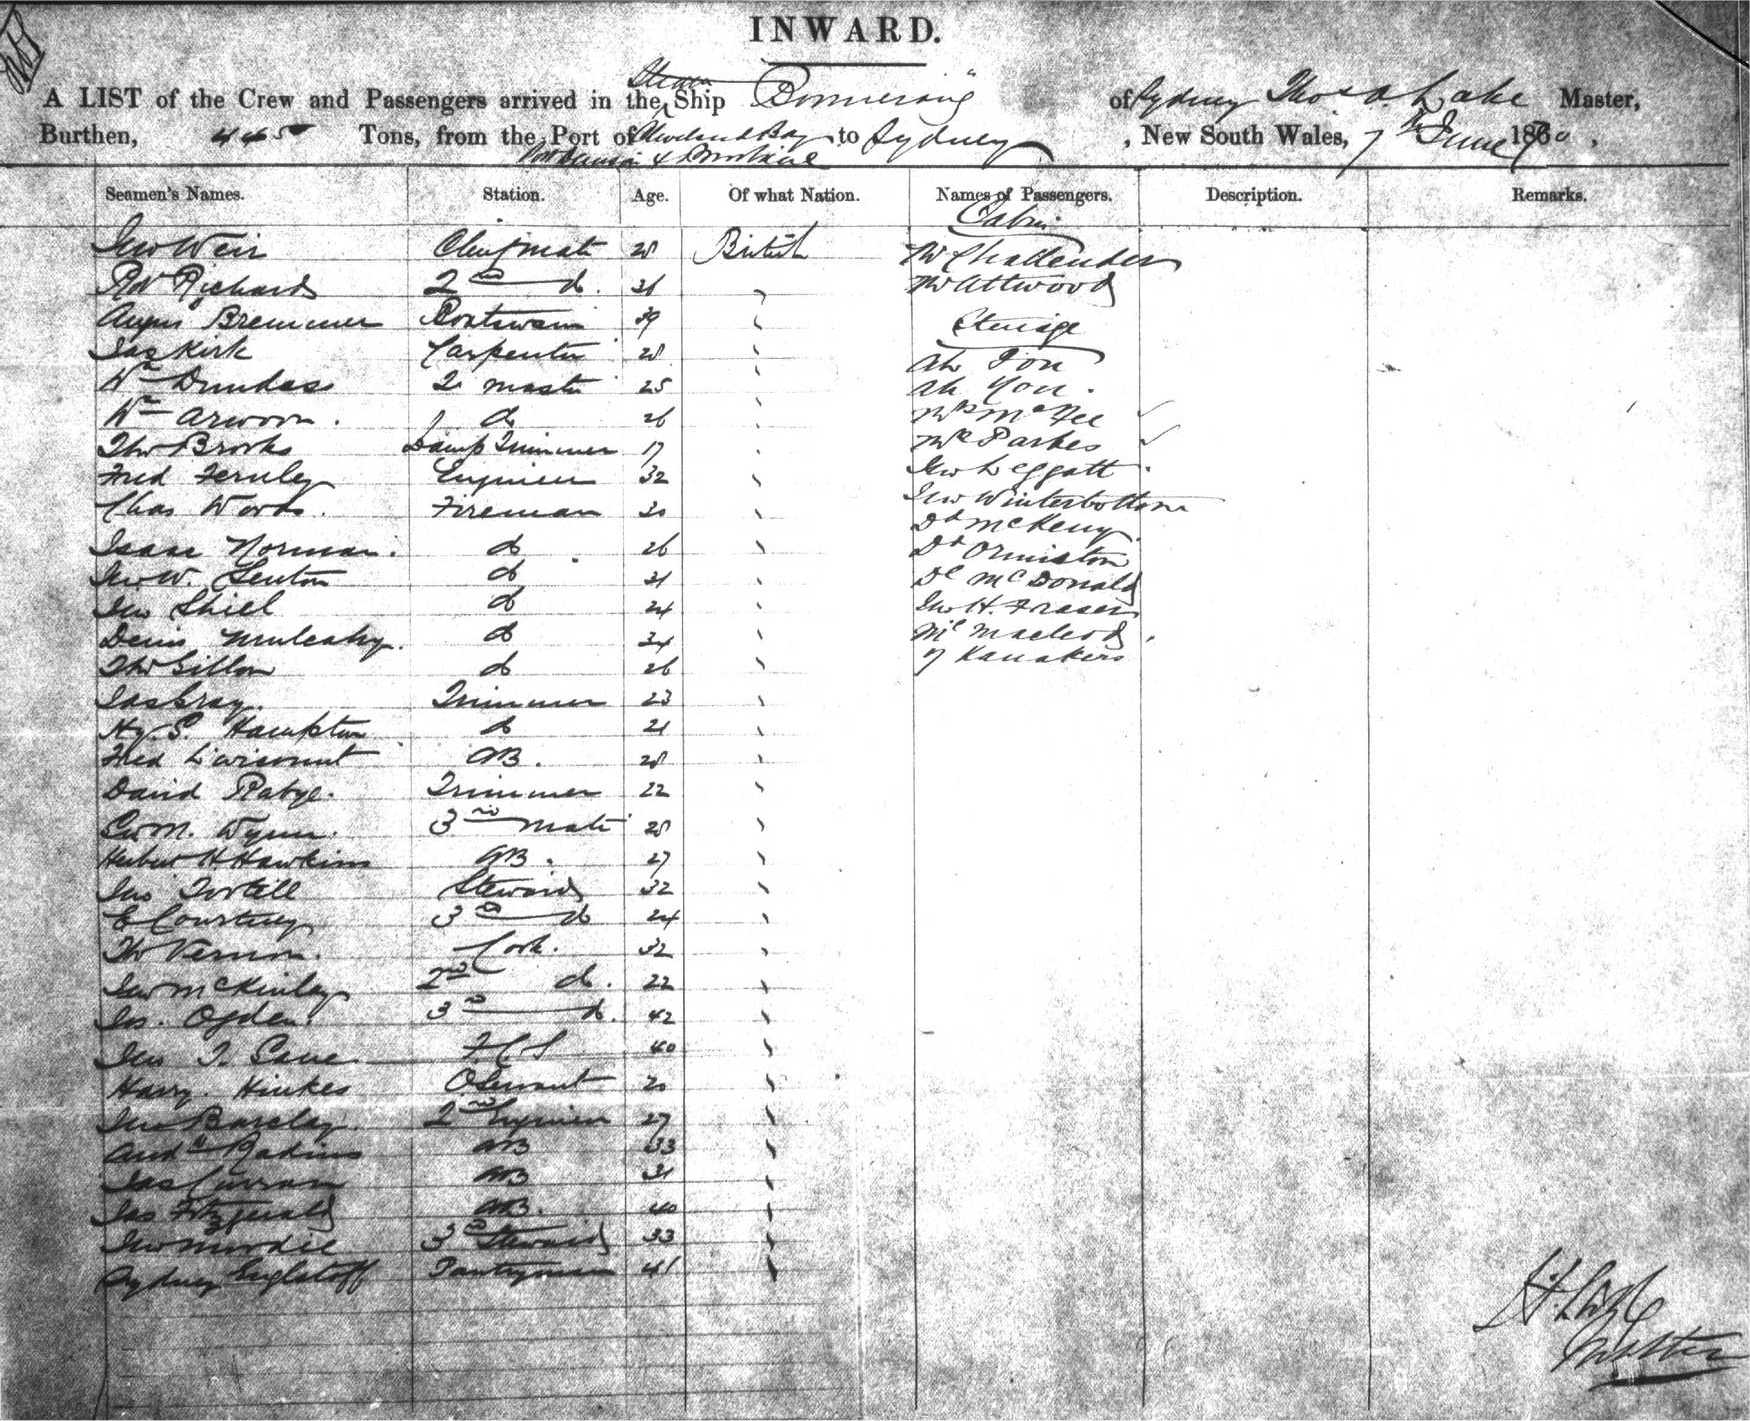 INWARD.
Steam
A LIST of the Crew and Passengers arrived in the Ship "Boomerang" of Sydney Thos. A. Lake Master,
Burthen, 445 Tons, from the Port of Cleveland Bay to Sydney, New South Wales, 7th June 1870.
Port Denison & Brisbane
Seamen's Names. Station. Age. Of what Nation. Names of Passengers. Description. Remarks.
Cabin
Jno Weir Chief mate 28 British Mr Challender
Rd Richards 2nd do. Mr Attwood
Angus Bremmer Boatswain 39 Steerage
Jas Kirk Carpenter 28 Ah Fon
Wm Dundass Q master 25 Ah You.
Wm Arwoon. do 26 Mrs McFee
Thos Brooks Lamp Trimmer 17 Parkes
Fred Fernley Engineer 32 Jno Leggatt
Chas Woods. Fireman 30 Jno Winterbottom
Isaac Norman. do 26 Dd McKeny
Jno W. Senton do 31 Dd Ormiston
Jno Shiel do 24 McDonald
Denis Mulcahy. do 34 Jno H. Fraser
Thos Gillon do 26 Macleod
Jas Gray. Trimmer 23 7 Kanakers
Hy. S. Hampton do 21
Fred AB. 28
David Ratye. Trimmer 22
Geo M. Wynn. 3rd mate 28
Herbert H. Hawkins AB. 27
Jno Steward 32
E Courtney 3rd do 24
Thos Vernon. Cook. 32
Jno McKinlay 2nd do. 22
Jos. Ogden. 3rd do. 42
Jno T. Cane. F.C.S 40
Harry. Hinkes O Servant 20
Jno Barclay. 2nd Engineer 27
Andw Radins AB 33
Jas Curran AB 31
Jas Fitzgerald AB. 40
Jno 3rd Steward 33
Sydney Pantryman 41
Master